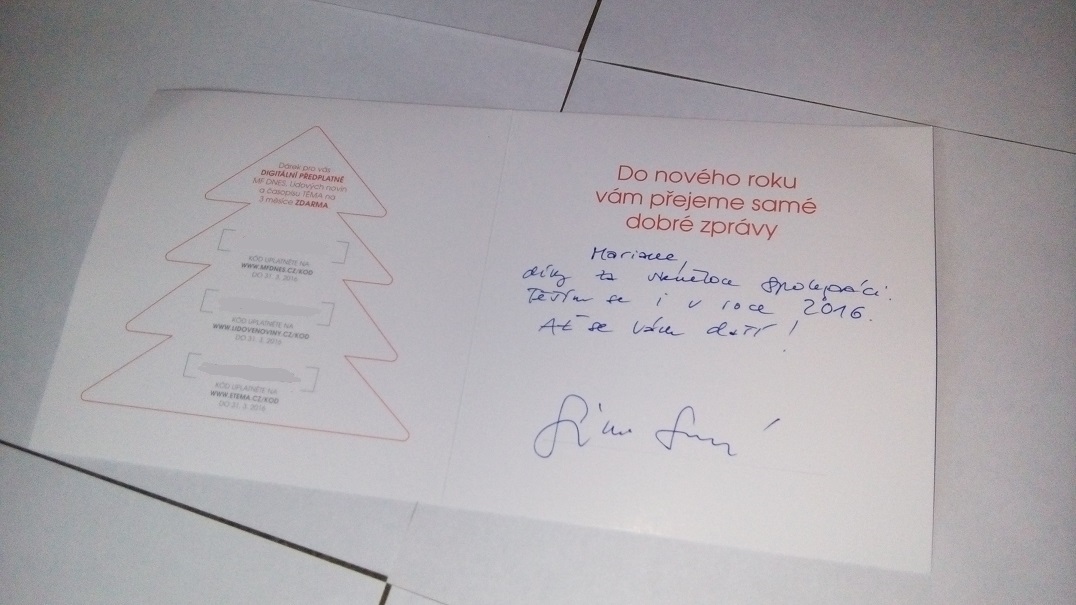 Dárek pro vás
DIGITÁLNÍ PŘEDPLATNÉ
MF DNES, Lidových novin
a časopisu TÉMA na
3 měsíce ZDARMA
KÓD UPLATNĚTE NA
WWW.MFDNES.CZ/KOD
DO 31. 3. 2016
KÓD UPLATNĚTE NA
WWW.LIDOVENOVINY.CZ/KOD
DO 31. 3. 2016
KÓD UPLATNĚTE NA
WWW.ETEMA.CZ/KOD
DO 31. 3. 2016
Do nového roku
vám přejeme samé
dobré zprávy
díky za spolupráci.
Těším se i v roce 2016.
Ať se Vám daří!